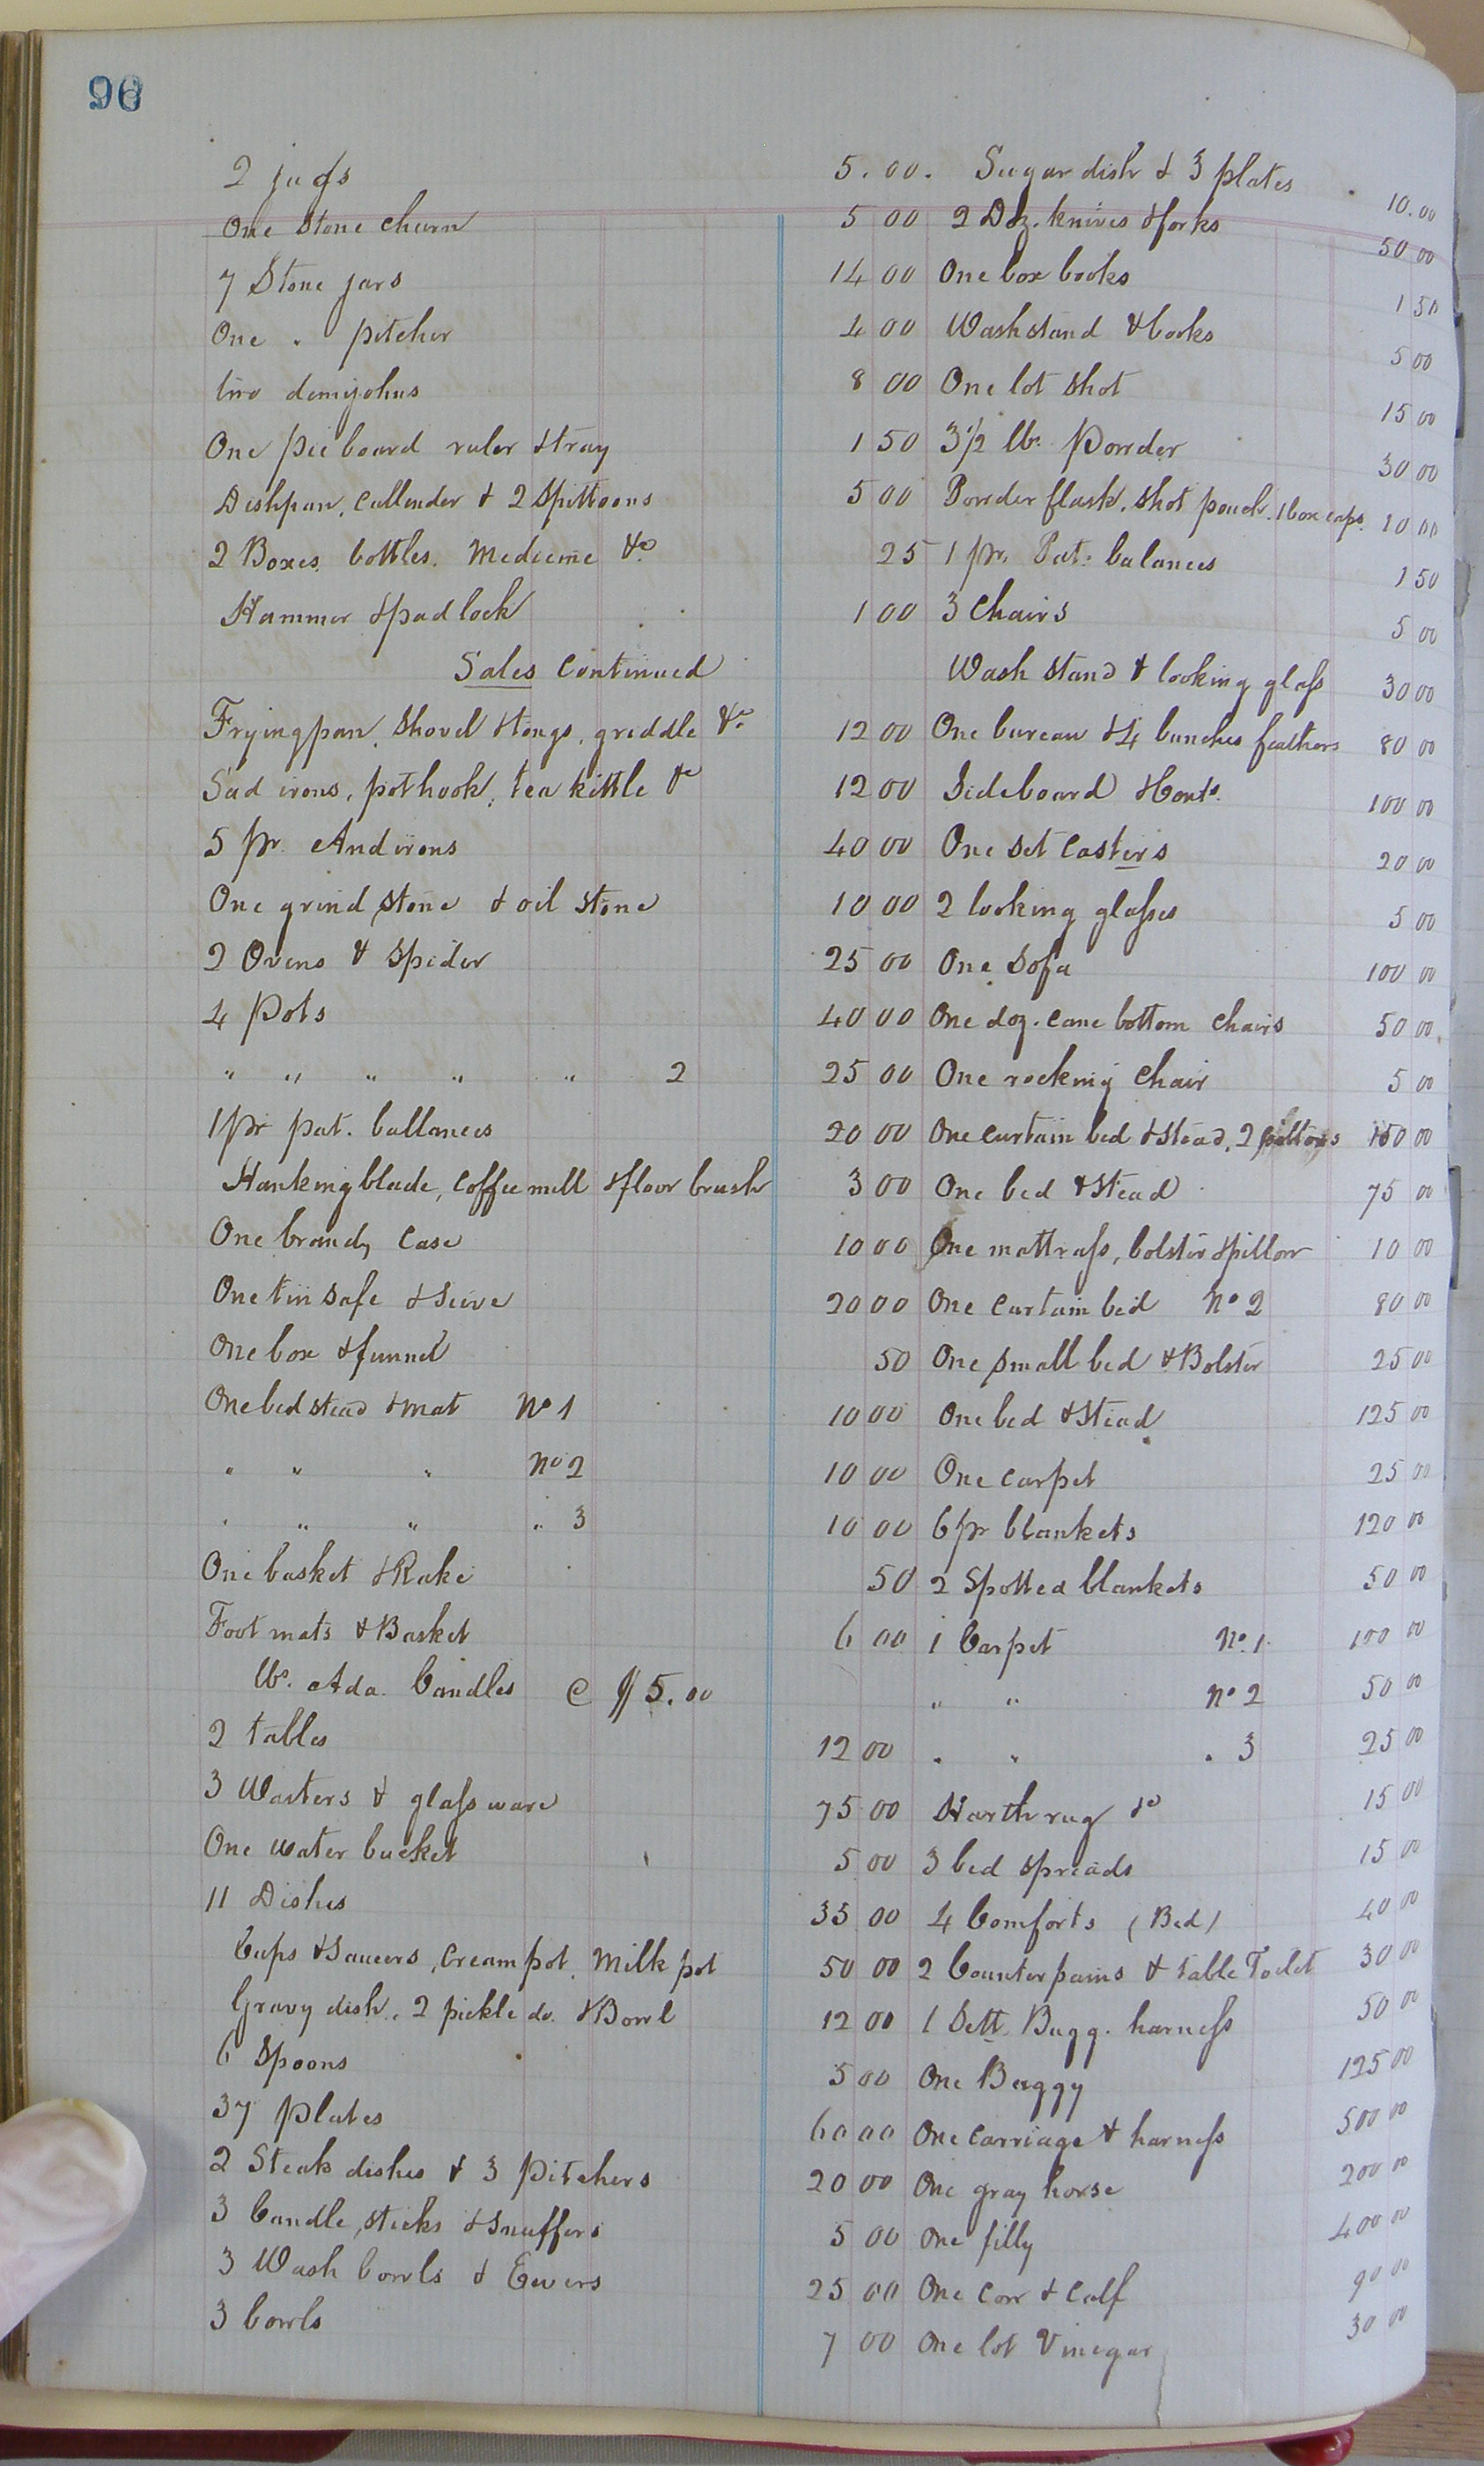 96
2 jugs 5.00.
One Stone churn 5 00
7 Stone jars 14 00
One " pitcher 4 00
two demijohns 8 00
One pie board ruler & tray 1 50
Dishpan, Cullender & 2 Spittoons 5 00
2 Boxes, bottles. Medicine &c 25
Hammer & padlock 1 00
Sales Continued
Fryingpan, Shovel & tongs, griddle &c 12 00
Sad irons, pot hook, tea kittle &c 12 00
5 pr. Andirons 40 00
One grind stone & oil stone 10 00
2 Ovens & Spider 25 00
4 Pots 40 00
" " " " " 2 25 00
1 pr pat. ballances 20 00
Hanking blade, Coffee mill & floor brush 3 00
One brandy Case 10 00
One tin Safe & Seive 20 00
One box & funnel 50
One bed stead & mat No 1 10 00
" " " No 2 10 00
" " " " 3 10 00
One basket & Rake 50
Foot mats & Basket 6 00
lbs. Ada. Candles @ $5.00
2 tables 12 00
3 Waiters & glass ware 75 00
One water bucket 5 00
11 Dishes 35 00
Cups & Saucers, Cream pot, Milk pot 50 00
Gravy dish, 2 pickle do. & Bowl 12 00
6 Spoons 5 00
37 plates 60 00
2 Steak dishes & 3 Pitchers 20 00
3 Candle, sticks & Snuffers 5 00
3 Wash bowls & Ewers 25 00
3 bowls 7 00
Sugar dish & 3 plates 10.00
2 Doz. knives & forks 50 00
One box books 1 50
Washstand & books 5 00
One lot Shot 15 00
3½ lbs. Powder 30 00
Powder flask, Shot pouch, 1 box caps. 10 00
1 pr. Pat. balances 1 50
3 Chairs 5 00
Wash Stand & looking glass 30 00
One bureau & 4 bunches feathers 80 00
Sideboard & Conts. 100 00
One Set Casters 20 00
2 looking glasses 5 00
One Sofa 100 00
One doz. Cane bottom Chairs 50 00
One rocking Chair 5 00
One curtain bed & Stead, 2 pillows 00
One bed & Stead 75 00
One mattrass, bolster & pillow 10 00
One Curtain bed No 2 80 00
One Small bed & Bolster 25 00
One bed & Stead 125 00
One Carpet 25 00
6 pr blankets 120 00
2 Spotted blankets 50 00
1 Carpet No. 1 100 00
" " No 2 50 00
" " " 3 25 00
Harth rug &c 15 00
3 bed Spreads 15 00
4 Comforts (Bed) 40 00
2 Counterpains & table Toilet 30 00
1 Sett. Bugg. harness 50 00
One Buggy 125 00
One Carriage & harness 500 00
One gray horse 200 00
One filly 400 00
One Cow & Calf 90 00
One lot Vinegar 30 00